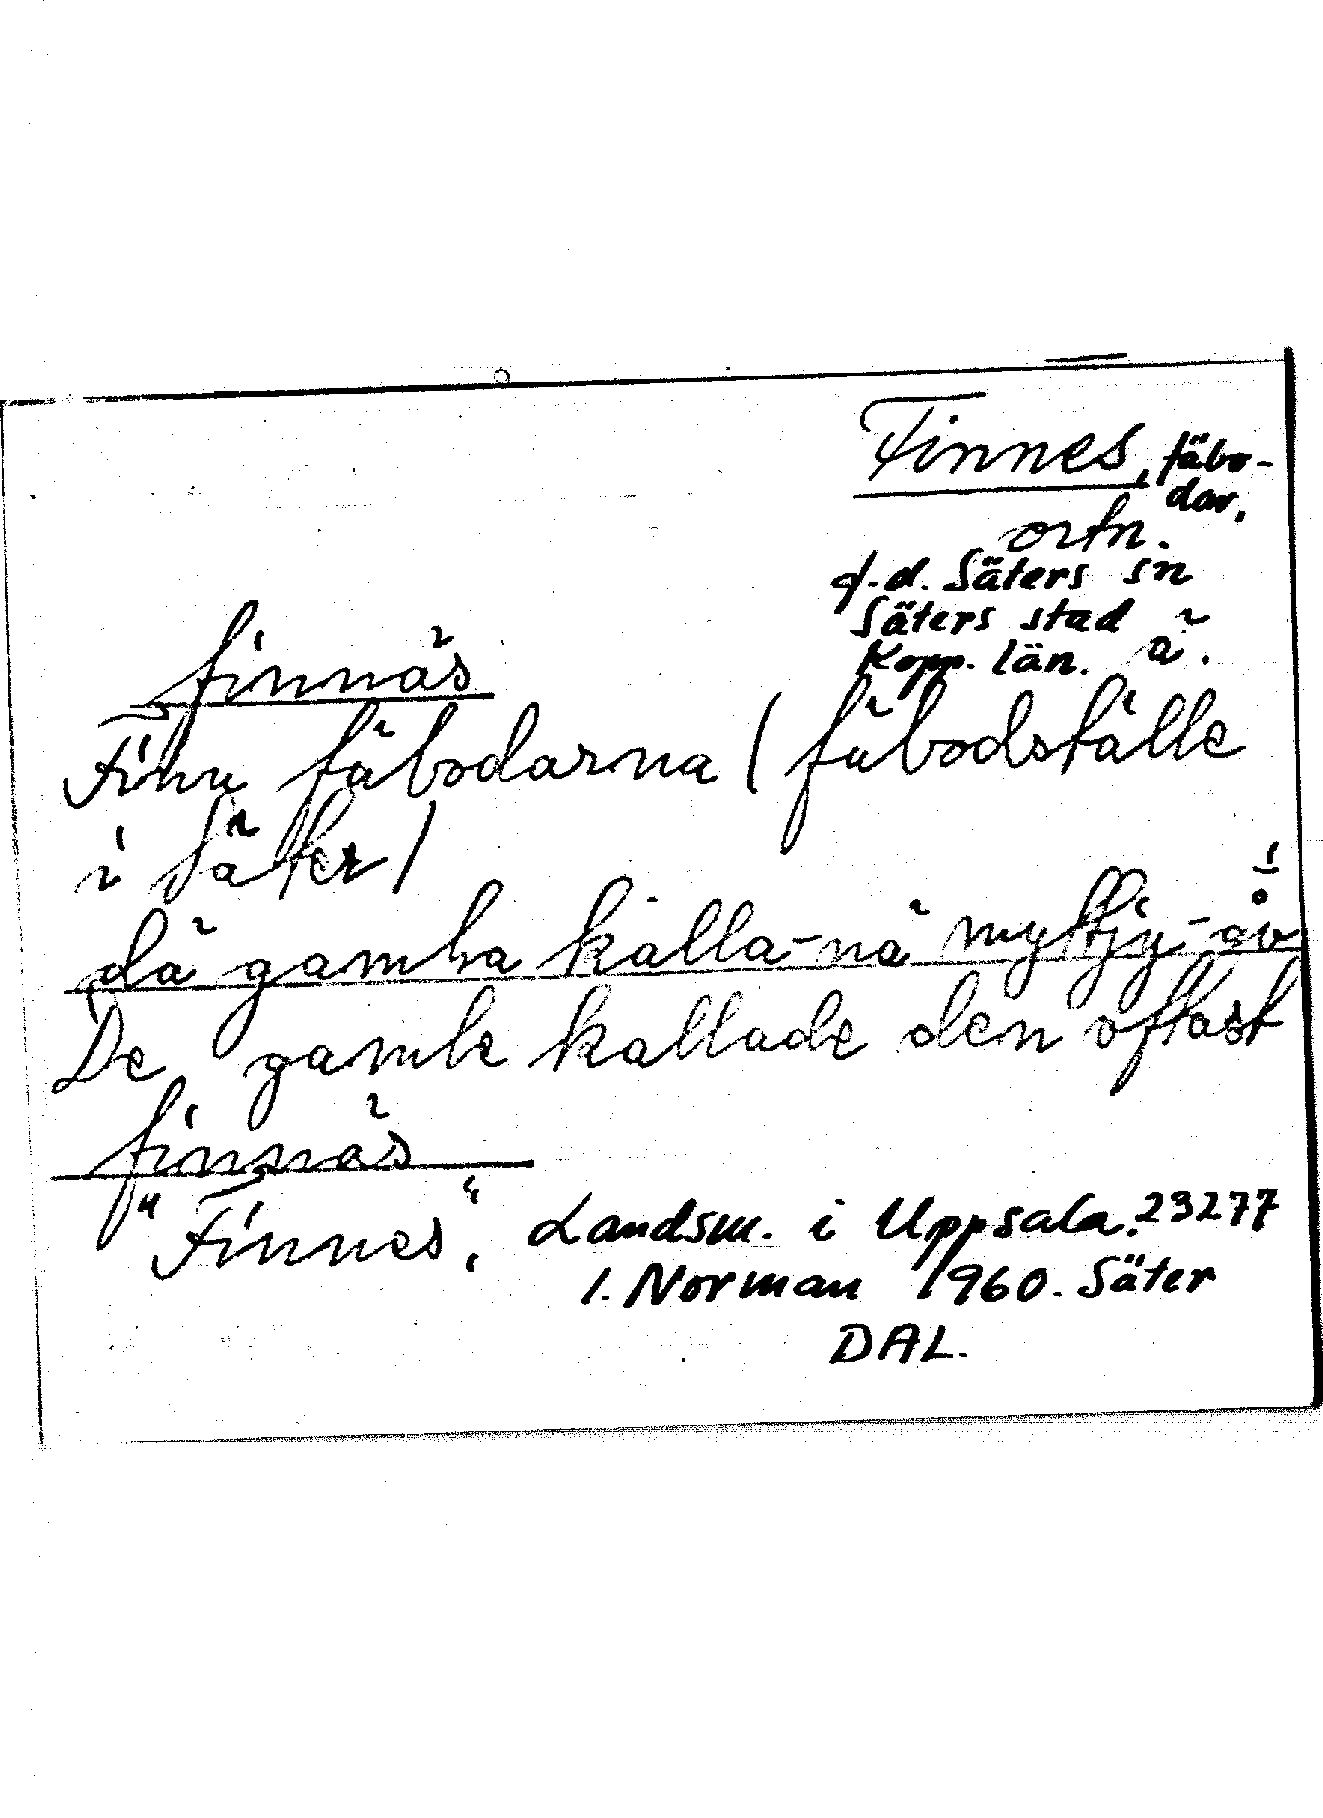 Finnes, fäbo-
dar,
ortn.
f.d. Säters sn
Säters stad
Kopp. län. ä.
finnäs
Finn fäbodarna (fäbodställe
i Säter)
dä gamba kalla-nä myttjy-åv
De gamle kallade den oftast
finnäs
"Finnes".
Landsm. i Uppsala. 23277
I. Norman 1960. Säter
DAL.